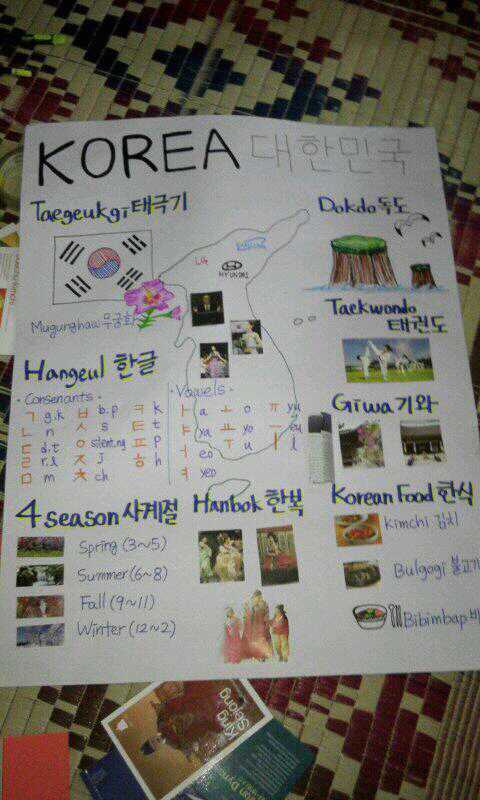 KOREA 대한민국
Taegeukgi 태극기
Mugunghwa 무궁화
LG
SAMSUNG
HYUNDAI
Dokdo 독도
Taekwondo
태권도
Hangeul 한글
· Consonants ·
ㄱ g.k ㅂ b.p ㅋ k
ㄴ n ㅅ s ㅌ t
ㄷ d.t ㅇ silent.ng ㅍ p
ㄹ r.l ㅈ J ㅎ h
ㅁ m ㅊ ch
· Vowels ·
ㅏ a ㅗ o ㅠ yu
ㅑ ya ㅛ yo ㅡ eu
ㅓ eo ㅜ u ㅣ i
ㅕ yeo
Giwa 기와
4 season 사계절
Spring (3~5)
Summer (6~8)
Fall (9~11)
Winter (12~2)
Hanbok 한복
Korean Food 한식
Kimchi 김치
Bulgogi 불고기
Bibimbap 비
King
Sejong